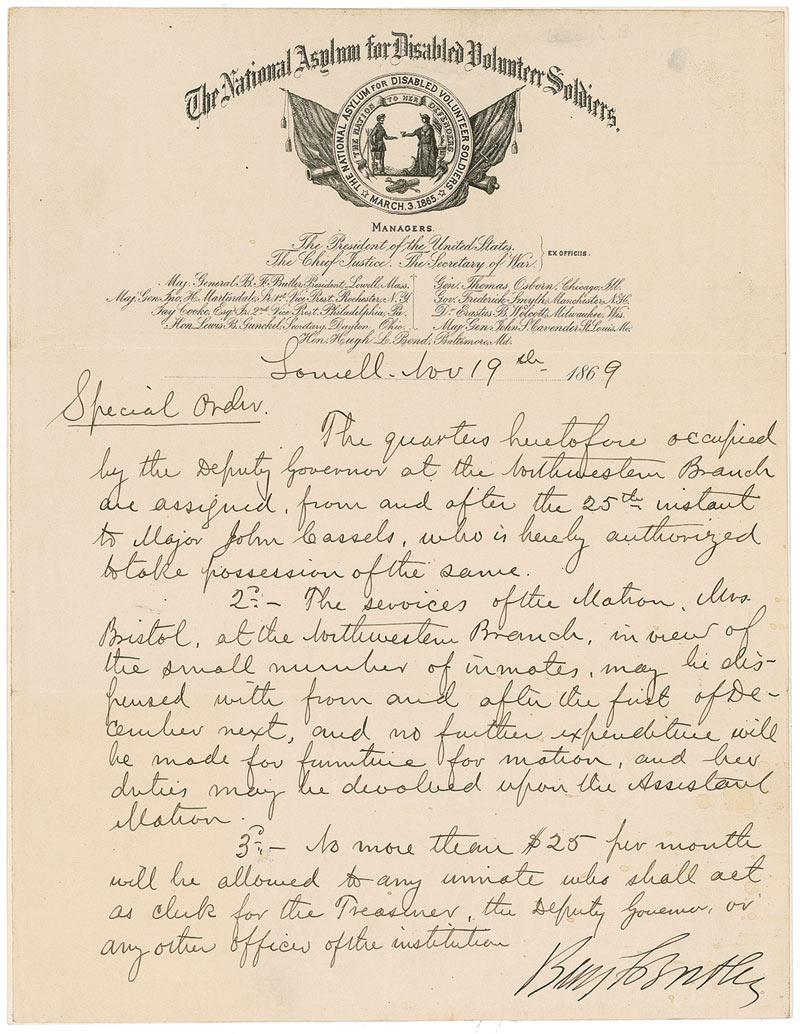 The National Asylum for Disabled Volunteer Soldiers.
THE NATIONAL ASYLUM FOR DISABLED VOLUNTEER SOLDIERS.
THE NATION TO HER DEFENDERS
MARCH, 3. 1865.
MANAGERS.
The President of the United States.
The Chief Justice. The Secretary of War.
EX OFFICIIS.
Maj. General B. F. Butler, President, Lowell, Mass.
Maj. Gen. Jno. H. Martindale, Sr. 1st Vice Prest. Rochester, N.Y.
Jay Cooke, Esq. Jr. 2nd Vice Prest. Philadelphia, Pa.
Hon. Lewis B. Gunckel, Secretary, Dayton, Ohio.
Gen. Thomas Osborn, Chicago, Ill.
Gov. Frederick Smyth, Manchester, N.H.
Dr. Erastus B. Wolcott, Milwaukee, Wis.
Maj. Gen. John S. Cavender, St. Louis, Mo.
Hon. Hugh L. Bond, Baltimore, Md.
Lowell. Nov 19th 1869
Special Order.
The quarters heretofore occupied
by the Deputy Governor at the Northwestern Branch
are assigned, from and after the 25th instant
to Major John Cassels, who is hereby authorized
to take possession of the same.
2d. - The services of the Matron, Mrs.
Bristol, at the Northwestern Branch, in view of
the small number of inmates, may be dis-
pensed with from and after the first of De-
cember next, and no further expenditure will
be made for furniture for matron, and her
duties may be devolved upon the Assistant
Matron.
3d. - No more than $25 per month
will be allowed to any inmate who shall act
as clerk for the Treasurer, the Deputy Governor, or
any other officer of the institution
Benj F Butler